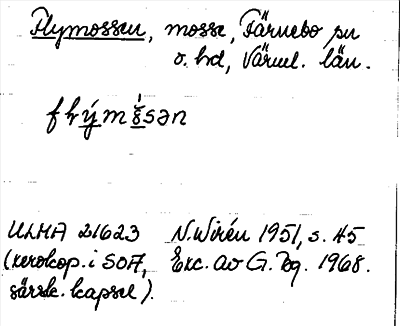 Flymossen, mosse, Färnebo sn
o. hd, Värml. län.
flým's̱sən
ULMA 21623 N. Wirén 1951, s. 45
(xerokop. i SOA, Exc. av G. Bg. 1968.
särsk. kapsel).